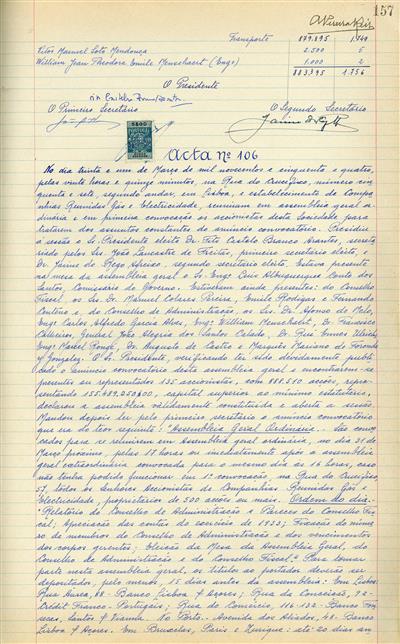 157
Transporte 879.895 1.749
Vitor Manuel Loto Mendonça 2.500 5
William Jean Theodora Emile Menschaert (Engº) 1.000 2
883.395 1.756
O Presidente
O Primeiro Secretário O Segundo Secretário
Acta nº 106
No dia trinta e um de Março de mil novecentos e cinquenta e quatro,
pelas vinte horas e quinze minutos, na Rua do Crucifixo, número cin-
quenta e sete, segundo andar, em Lisboa, e estabelecimento da Compa-
nhias Reunidas Gás e Electricidade, reuniram em assembleia geral or-
dinária e em primeira convocação os accionistas desta Sociedade para
tratarem dos assuntos constantes do anúncio convocatório. Presidiu
à sessão o Sr. Presidente eleito Dr. Fito Castelo Branco Arantes, secreta-
riado pelos Srs. José Lancastre de Freitas, primeiro secretário eleito,
Dr. Jaime do Rego Afreixo, segundo secretário eleito. Estava presente
na mesa da assembleia geral o Sr. Engº Luis Albuquerque Couto dos
Santos, Comissário do Governo. Estiveram ainda presentes: do Conselho
Fiscal, os Srs. Dr. Manuel Colares Pereira, Emile Rodigas e Fernando
Centeno e, do Conselho de Administração, os Srs. Dr. Afonso de Melo,
Engº Carlos Alfredo Garcia Alves, Engº William Menschaert, Dr. Francisco
Calheiros, General João Alegria dos Santos Calado, Dr. Ruy Ennes Ulrich,
Engº Marcel Rongé, Dr. Augusto de Castro e Marquês Mariano de Foronda
y Gonzalez. O Sr. Presidente, verificando ter sido devidamente publi-
cado o anúncio convocatório desta assembleia geral e encontrarem-se
presentes ou representados 135 accionistas, com 888.510 acções, repre-
sentando 155.489.250$00, capital superior ao mínimo estatutário,
declarou a assembleia validamente constituída e aberta a sessão.
Mandou depois ler pelo primeiro secretário o anúncio convocatório
que era do teor seguinte: "Assembleia Geral Ordinária. - São convo-
cados para se reunirem em Assembleia geral ordinária, no dia 31 de
Março próximo, pelas 17 horas ou imediatamente após a assembleia
geral extraordinária convocada para o mesmo dia às 16 horas, caso
não tenha podido funcionar em 1ª convocação, na Rua do Crucifixo
57, todos os Senhores Accionistas da Companhias Reunidas Gás e
Electricidade, proprietários de 500 acções ou mais. Ordem do dia.
"Relatório do Conselho de Administração e Parecer do Conselho Fis-
cal; Apreciação das contas do exercício de 1953; Fixação do núme-
ro de membros do Conselho de Administração e dos vencimentos
dos corpos gerentes; Eleição da Mesa da Assembleia Geral, do
Conselho de Administração e do Conselho Fiscal". Para tomar
parte nesta assembleia geral, os títulos ao portador deverão ser
depositados, pelo menos, 15 dias antes da assembleia: Em Lisboa
Rua Aurea, 88 - Banco Lisboa & Açores; Rua da Conceição, 92 -
Crédit Franco-Portugais; Rua do Comércio, 116-132 - Banco Fon-
secas, Santos & Vianna. No Porto. Avenida dos Aliados, 68 - Banco
Lisboa & Açores. Em Bruxelas, Paris e Zurique: até 20 dias an-